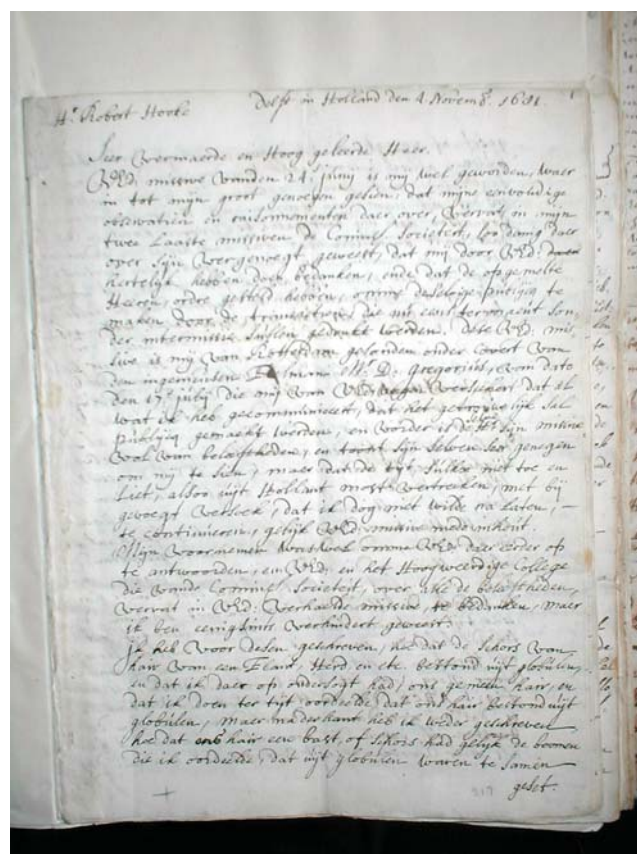 Hr. Robert Hooke Delft in Holland den 4. Novemb. 1681.
Seer Vermaerde en Hoog geleerde Heer.
VEd: missive vanden 24 Junij is mij wel geworden, waer
in tot mijn groot genoegen gesien, dat mijne eenvoudige
observatien en raisonnementen daer over, vervat in mijn
twee laaste missiven de Coninkl: Societeit, soo danig daer
over sijn vergenoegt geweest, dat mij door VEd:
hertelijk hebben doen bedanken, ende dat de opgemelte
Heeren, ordre gestelt hebben, omme deselvige publijcq te
maken door de transactien die
der intermissie sullen gedrukt werden. Dese VEd: mis-
sive is mij van Rotterdam gesonden onder Covert van
den Mr. D: Gregorius, van dato
den 17 july die mij van VEd: wegen versekert, dat al
wat ik heb gecommuniceert, dat het sal
publijcq gemaekt werden, en vorder is de Hr. sijn missive
vol van beleeftheden, en toont sijn selven seer genegen
om mij te sien, maer dat de tijt sulks niet toe en
liet, alsoo uijt Hollant most vertrecken, met bij
gevoegt versoek, dat ik dog niet wilde na laten,
te continueren, gelijk VEd: missive mede inhout.
Mijn voornemen was wel omme VEd: daer eerder op
te antwoorden, em VEd: en het Hoogweerdige College
die vande Coninkl: Societeit, over alle de beleeftheden,
vervat in VEd: verhaelde missive, te bedanken, maer
ik ben eenigsints verhindert geweest.
Ik heb voor desen geschreven, hoe dat de schors van
hair van een Elant, Herd en etc bestond uijt globulen,
en dat ik daer op ondersogt had, ons gemeen hair, en
dat ik doen ter tijt oordeelde dat ons hair bestond uijt
globulen, maer naderhant heb ik weder geschreven
hoe dat ons hair een bast, of schors had gelijk de boomen
die ik oordeelde, dat uijt globulen waren te samen
geset.